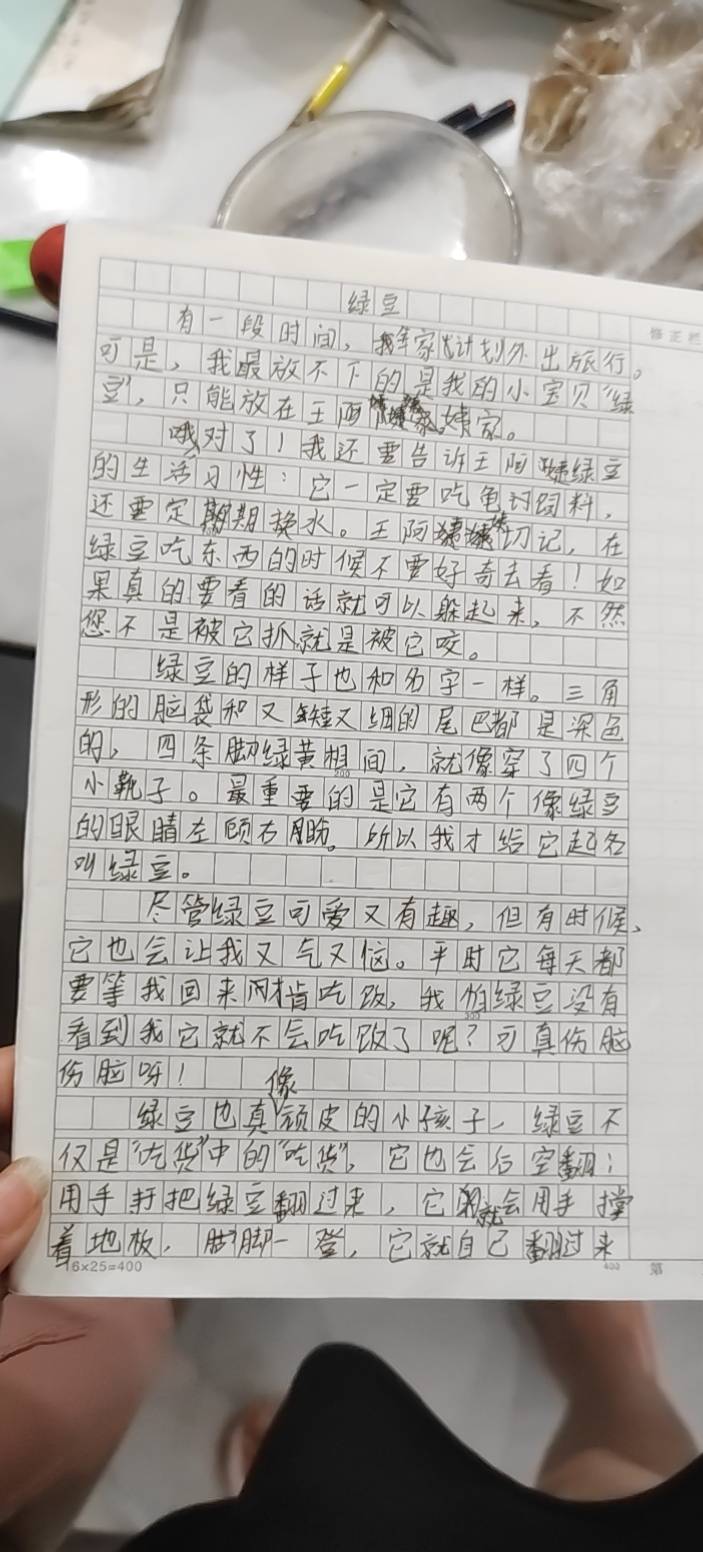 绿豆
修正栏
有一段时间，我家计划外出旅行。
可是，我最放不下的是我的小宝贝“绿
豆”，只能放在王阿姨家。
哦对了！我还要告诉王阿姨绿豆
的生活习性：它一定要吃龟饲料，
还要定期换水。王阿姨切记，在
绿豆吃东西的时候不要好奇去看！如
果真的要看的话就可以躲起来，不然
您不是被它抓就是被它咬。
绿豆的样子也和名字一样。三角
形的脑袋和又短又细的尾巴都是深色
的，四条脚绿黄相间，就像穿了四个
200
小靴子。最重要的是它有两个像绿豆
的眼睛左顾右盼。所以我才给它起名
叫绿豆。
尽管绿豆可爱又有趣，但有时候，
它也会让我又气又恼。平时它每天都
要等我回来才肯吃饭，我怕绿豆没有
300
看到我它就不会吃饭了呢？可真伤脑
伤脑呀！
绿豆也真像顽皮的小孩子，绿豆不
仅是“吃货”中的“吃货”，它也会后空翻；
用手把绿豆翻过来，它就会用手撑
着地板，脚一登，它就自己翻过来
16×25=400
400
第